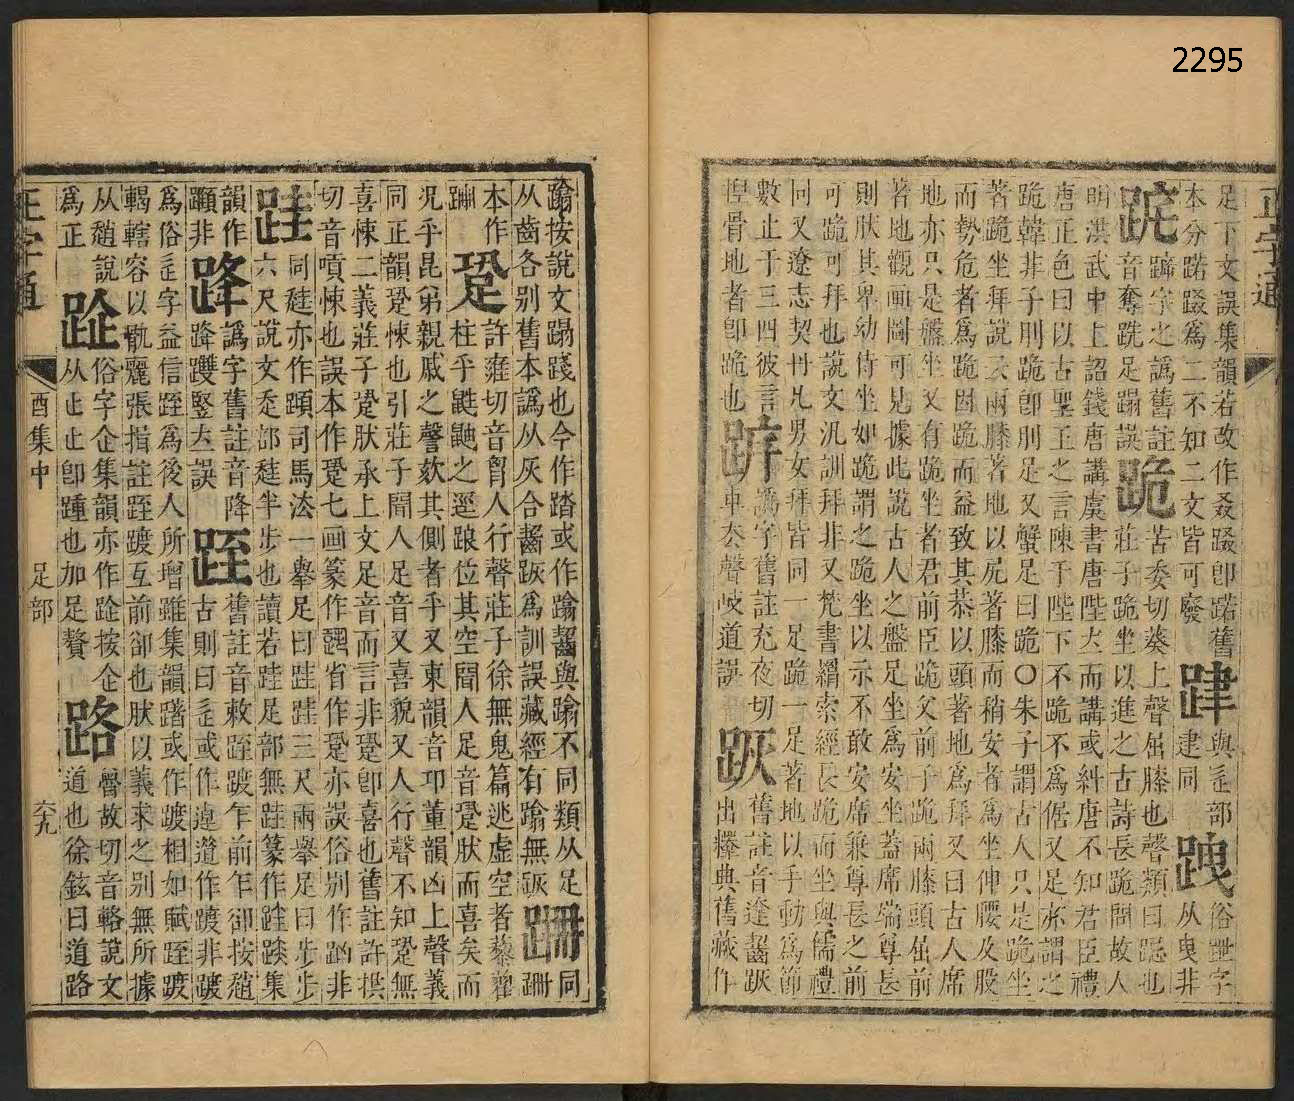 2295
正字通
足下文誤集韻若故作叒踀卽踀舊
本分踞踀爲二不知二文皆可廢 𨀲 與辵部建同 跩 俗跇字从曳非
跣 蹏字之譌舊註音奪跣足蹋誤 跪 苦委切葵上聲屈膝也聲類曰跽也莊子跪坐以進之古詩長跪問故人
明洪武中上詔錢唐講虞書唐陛立而講或糾唐不知君臣禮
唐正色曰以古聖王之言陳于陛下不跪不爲倨又足亦謂之
跪韓非子刖跪卽刖足又蟹足曰跪〇朱子謂古人只是跪坐
著跪坐拜說云兩膝著地以尻著膝而稍安者爲坐伸腰及股
而勢危者爲跪因跪而益致其恭以頭著地爲拜又曰古人席
地亦只是盤坐又有跪坐者君前臣跪父前子跪兩膝頭屈前
著地觀画圖可見據此說古人之盤足坐爲安坐蓋席端尊長
則肰其卑幼侍坐如跪謂之跪坐以示不敢安席兼尊長之前
可跪可拜也說文汎訓拜非又梵書緝索經長跪而坐與儒禮
同又遼志契丹凡男女拜皆同一足跪一足著地以手動爲節
數止于三四彼言
捏骨地者卽跪也 𨁏 譌字舊註充夜切車去聲岐道誤 䟴 舊註音逢齧䟴出釋典舊藏作
蹹按說文蹋踐也今作踏或作蹹齧與蹹不同類从足
从齒各别舊本譌从灰合齧䟴爲訓誤藏經有蹹無䟴 跚 同跚
本作
蹣 跫 許雍切音胷人行聲莊子徐無鬼篇逃虛空者藜藋柱乎鼪鼬之逕踉位其空聞人足音跫肰而喜矣而
況乎昆弟親戚之謦欬其側者乎又東韻音邛董韻凶上聲義
同正韻跫悚也引莊子聞人足音又喜貌又人行聲不知跫無
喜悚二義莊子跫肰承上文足音而言非跫卽喜也舊註許拱
切音嗊悚也誤本作跫七画篆作省作跫亦誤俗別作跏非
跬 同䞨亦作頍司馬法一舉足曰跬跬三尺兩舉足曰步步六尺說文走部䞨半步也讀若跬足部無跬篆作趌䟰集
韻作
蹞非 跭 譌字舊註音降跭䠫竪立誤 跮 舊註音敕跮踱乍前乍卻按趙古則曰辵或作遑遒作踱非踱
爲俗辵字益信跮爲後人所增雖集韻躇或作踱相如賦跮踱
輵轄容以骫麗張揖註跮踱互前卻也肰以義求之别無所據
从趙說
爲正 跐 俗字企集韻亦作跐按企从止止卽踵也加足贅 路 魯故切音輅說文道也徐鉉曰道路
正字通
酉集中
足部
六九